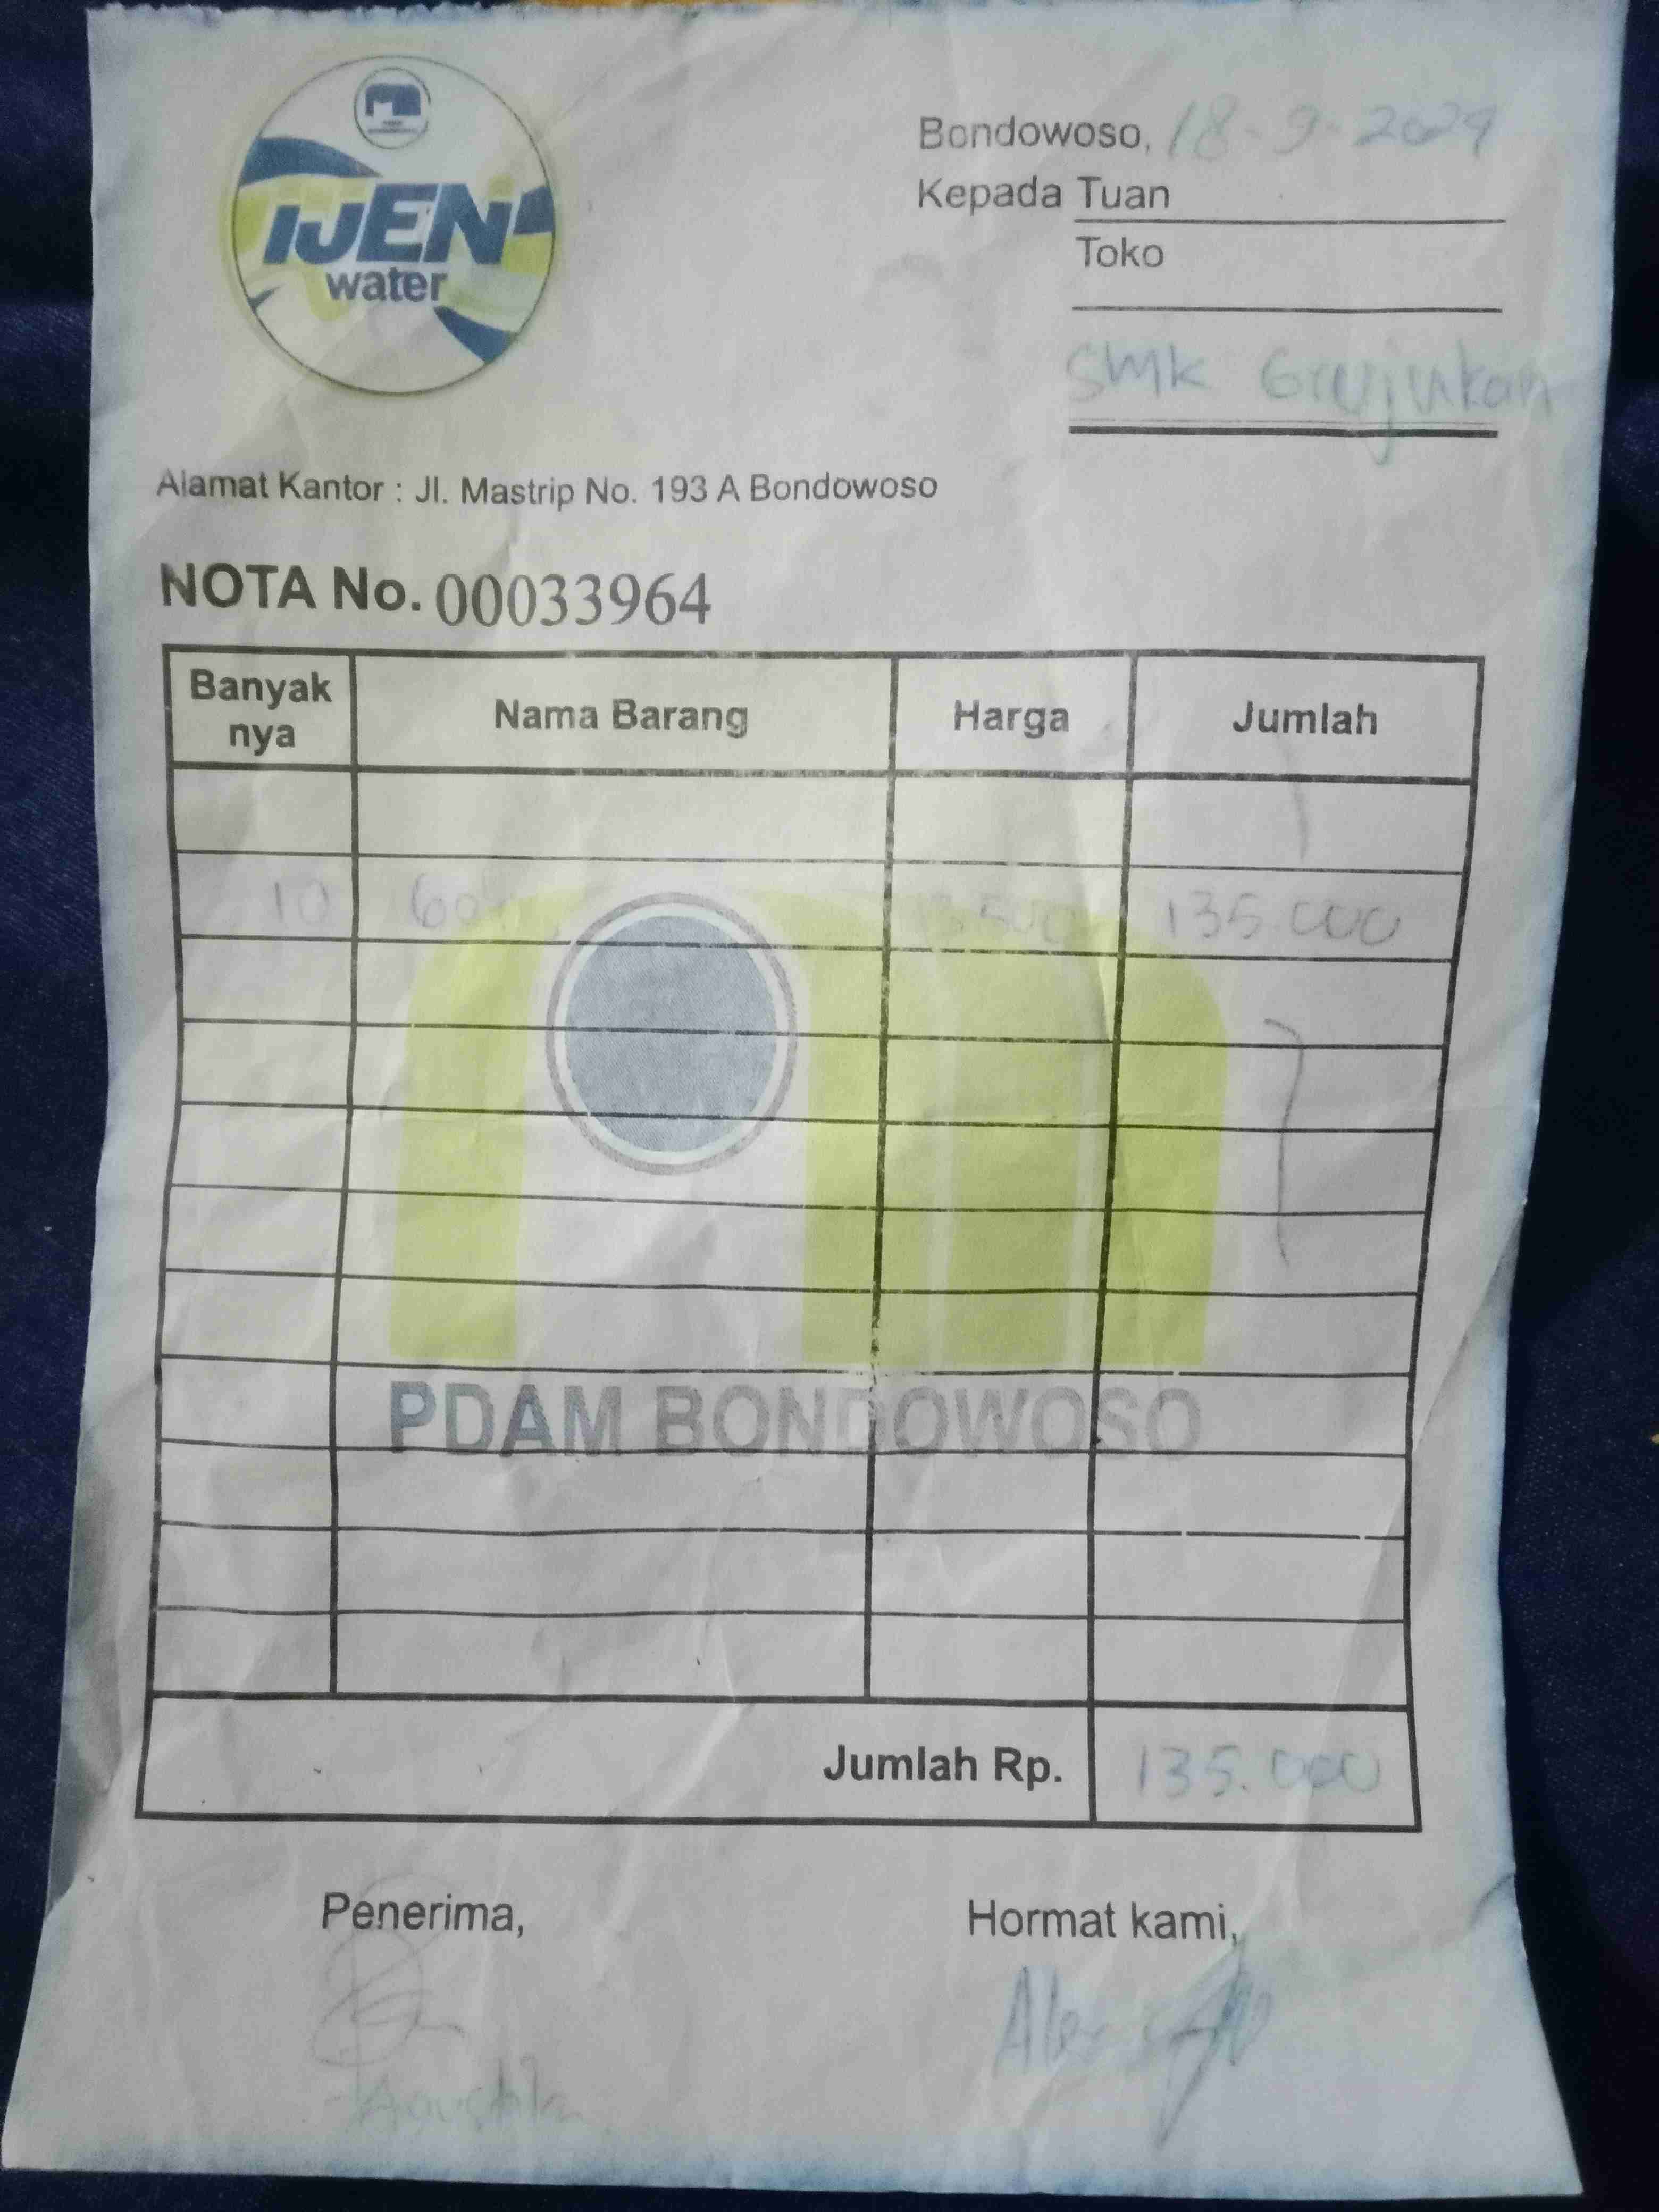 IJEN
water
Bondowoso, 18-9-2024
Kepada Tuan
Toko
SMK Grujukan
Alamat Kantor : Jl. Mastrip No. 193 A Bondowoso
NOTA No. 00033964
Banyak nya Nama Barang Harga Jumlah
10 600 13500 135.000
PDAM BONDOWOSO
Jumlah Rp. 135.000
Penerima, Hormat kami,